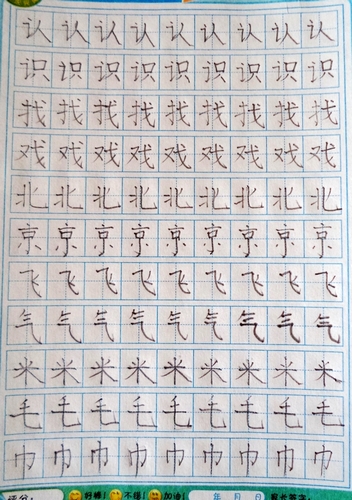 认认认认认认认认认
识识识识识识识识识
找找找找找找找找找
戏戏戏戏戏戏戏戏戏
北北北北北北北北北
京京京京京京京京京
飞飞飞飞飞飞飞飞飞
气气气气气气气气气
米米米米米米米米米
毛毛毛毛毛毛毛毛毛
巾巾巾巾巾巾巾巾巾
评分: 好棒! 不错! 加油! 年 月 日